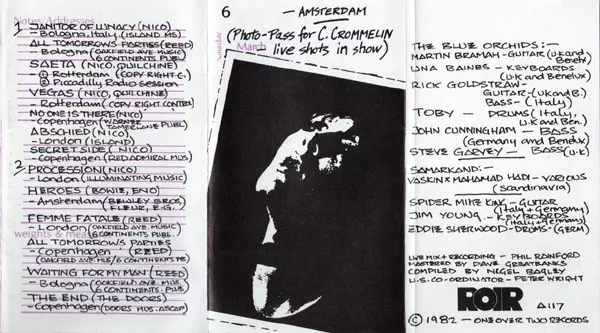 Notes Addresses
1 JANITOR OF LUNACY (NICO)
- Bologna, Italy (ISLAND MS)
ALL TOMORROWS PARTIES (REED)
- Bologna (OAKFIELD AVE. MUSIC/
6 CONTINENTS PUBL
SAETA (NICO, QUILCHINE)
@ Rotterdam (COPY RIGHT C.)
@ Piccadilly Radio session
VEGAS (NICO, QUILCHINE)
- Rotterdam (COPY RIGHT CONTROL)
NO ONE IS THERE (NICO)
- Copenhagen (WARNER
TAMERLANE PUBL)
ABSCHIED (NICO)
- London (ISLAND)
SECRET SIDE (NICO)
- Copenhagen (RED ADMIRAL MUS)
2 PROCESSION (NICO)
- London (ILLUMINATING MUSIC)
HEROES (BOWIE, ENO)
- Amsterdam (BEWLEY BROS.
FLEUR, E.G.
FEMME FATALE (REED)
- London (OAKFIELD AVE. MUSIC/
6 CONTINENTS PUB.
weights & mea
ALL TOMORROWS PARTIES
- Copenhagen (REED)
(OAKFIELD AVE. MUS/6 CONTINENTS PB
WAITING FOR MY MAN (REED)
- Bologna (OAKFIELD AVE. MUS.
6 CONTINENTS. PUB
THE END (THE DOORS)
- Copenhagen (DOORS MUS. ASCAP)
6
Saturday
March
- AMSTERDAM
(Photo-Pass for C. CROMMELIN
live shots in show)
THE BLUE ORCHIDS:-
MARTIN BRAMAH - GUITAR (U.K and
Benelx)
UNA BAINES - KEYBOARDS
(U.K and Benelux)
RICK GOLDSTRAW -
GUITAR - (U.K and B.)
BASS - (Italy)
TOBY - DRUMS (Italy,
U.K and Ben.)
JOHN CUNNINGHAM - BASS
(Germany and Benelux)
STEVE GARVEY - BASS (U.K)
SAMARKAND:-
VASKIN & MAHAMAD HADI - VARIOUS
(Scandinavia)
SPIDER MIKE KING - GUITAR
(Italy + Germany)
JIM YOUNG - KEYBOARDS
(Italy + Germany)
EDDIE SHERWOOD - DRUMS - (GERM)
LIVE MIX + RECORDING - PHIL RAINFORD
MASTERED BY DAVE GREATBANKS
COMPILED BY NIGEL BAGLEY
U.S. CO-ORDINATOR - PETER WRIGHT
ROIR A117
© 1982 - ONE OVER TWO RECORDS